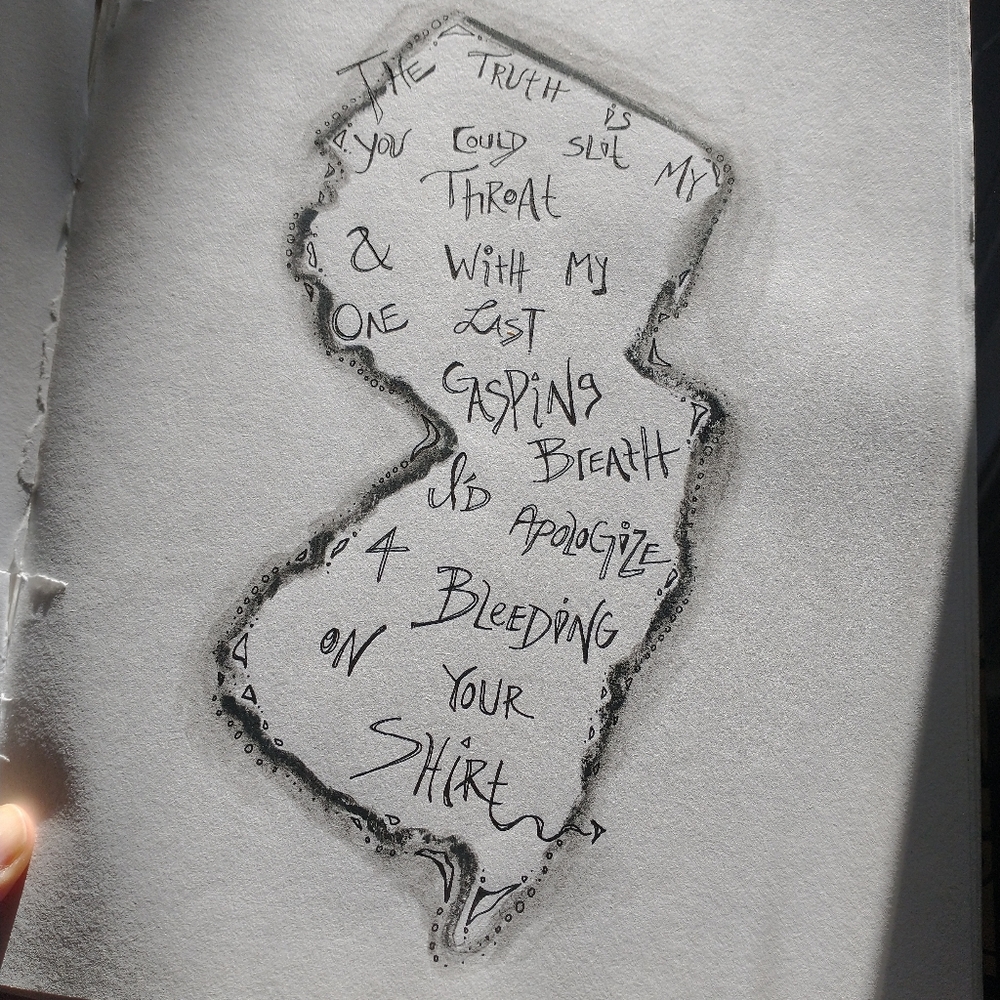 THE TRUTH is
YOU COULD SLit MY
ThROAt
& WiTH MY
ONE LAST
GASPiNg
BrEAtH
I'D APOLOGiZE
4 BLeEDiNG
ON YOUR
SHiRt